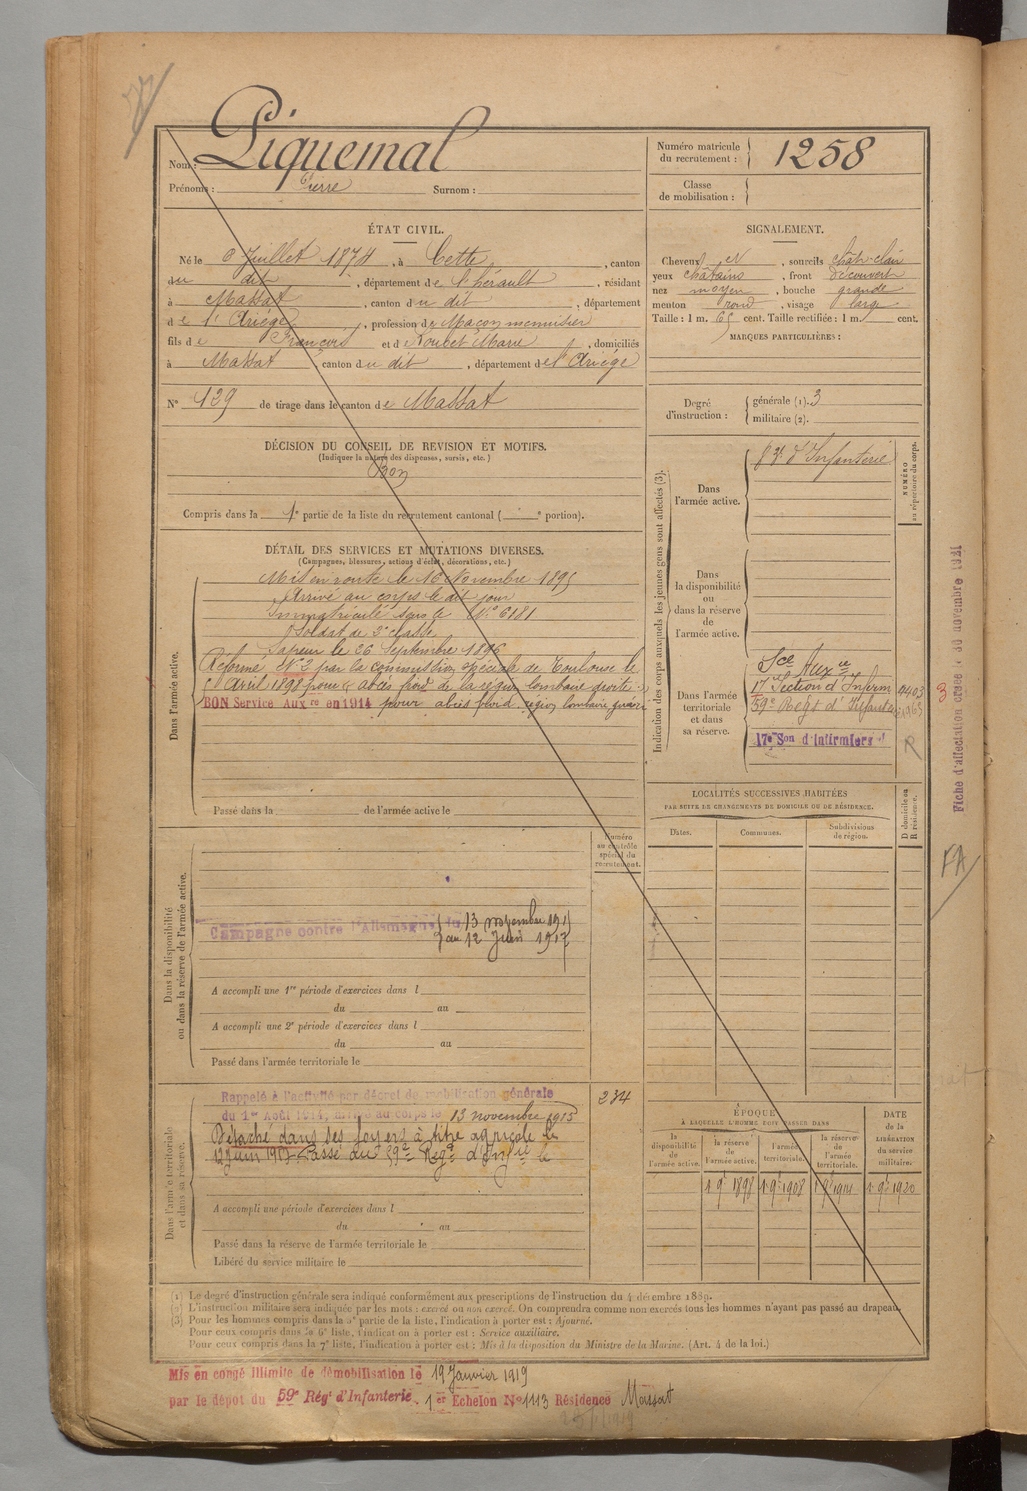 77
Nom : Piquemal
Prénoms : Pierre Surnom :
Numéro matricule du recrutement : 1258
Classe de mobilisation :
ÉTAT CIVIL.
Né le Juillet 1874, à Cette, canton
du dit, département de l'hérault, résidant
à Massat, canton du dit, département
de l'Ariége, profession de Maçon menuisier
fils de François et de Loubet Marie, domiciliés
à Massat, canton du dit, département de l'Ariége
N° 129 de tirage dans le canton de Massat
SIGNALEMENT.
Cheveux, sourcils chât-clair
yeux châtains, front découvert
nez moyen, bouche grande
menton rond, visage large
Taille : 1 m. 65 cent. Taille rectifiée : 1 m. cent.
MARQUES PARTICULIÈRES :
Degré d'instruction : générale (1). 3
militaire (2).
DÉCISION DU CONSEIL DE REVISION ET MOTIFS.
(Indiquer la nature des dispenses, sursis, etc.)
Bon
Compris dans la 1e partie de la liste du recrutement cantonal ( e portion).
DÉTAIL DES SERVICES ET MUTATIONS DIVERSES.
(Campagnes, blessures, actions d'éclat, décorations, etc.)
Dans l'armée active.
Mis en route le 16 Novembre 1895
Arrivé au corps le dit jour
Immatriculé sous le N° 6181
Soldat de 2e classe
Sapeur le 26 Septembre 1896
Réformé N° 2 par la commission spéciale de Toulouse le
Avril 1898 pour « abcès froid de la région lombaire droite. »
BON Service Auxre en 1914 pour abcès froid région lombaire
Passé dans la de l'armée active le
Indication des corps auxquels les jeunes gens sont affectés (3).
NUMÉRO au répertoire du corps.
Dans l'armée active.
d'Infanterie
Dans la disponibilité ou dans la réserve de l'armée active.
Dans l'armée territoriale et dans sa réserve.
Sce Auxre
17e Section d'Inferm 9403
59e Regt d'Infantie
17e Son d'Infirmiers
R
3
Fiche d'affectation créée le 30 novembre 1921
FA
LOCALITÉS SUCCESSIVES HABITÉES
PAR SUITE DE CHANGEMENTS DE DOMICILE OU DE RÉSIDENCE.
Dates. Communes. Subdivisions de région. D domicile ou R résidence.
Numéro au contrôle spécial du recrutement.
Dans la disponibilité ou dans la réserve de l'armée active.
Campagne contre l'Allemagne du 13 novembre 191
au 12 Juin 1917
A accompli une 1re période d'exercices dans l
du au
A accompli une 2e période d'exercices dans l
du au
Passé dans l'armée territoriale le
Dans l'armée territoriale et dans sa réserve.
234
Rappelé à l'activité par décret de mobilisation générale
du 1er Août 1914, arrivé au corps le 13 novembre 1915
Détaché dans ses foyers à titre agricole le
12 Juin 1917 Passé au 59e Regt d'Infie le
A accompli une période d'exercices dans l
du au
Passé dans la réserve de l'armée territoriale le
Libéré du service militaire le
ÉPOQUE
À LAQUELLE L'HOMME DOIT PASSER DANS
la disponibilité de l'armée active. la réserve de l'armée active. l'armée territoriale. la réserve de l'armée territoriale.
DATE de la LIBÉRATION du service militaire.
1 9e 1898 1 9e 1908 1 9e 1914 1 9e 1920
(1) Le degré d'instruction générale sera indiqué conformément aux prescriptions de l'instruction du 4 décembre 1889.
(2) L'instruction militaire sera indiquée par les mots : exercé ou non exercé. On comprendra comme non exercés tous les hommes n'ayant pas passé au drapeau.
(3) Pour les hommes compris dans la 2e partie de la liste, l'indication à porter est : Ajourné.
Pour ceux compris dans la 6e liste, l'indication à porter est : Service auxiliaire.
Pour ceux compris dans la 7e liste, l'indication à porter est : Mis à la disposition du Ministre de la Marine. (Art. 4 de la loi.)
Mis en congé illimité de démobilisation le 19 Janvier 1919
par le dépôt du 59e Régt d'Infanterie, 1er Echelon N° 1113 Résidence Massat